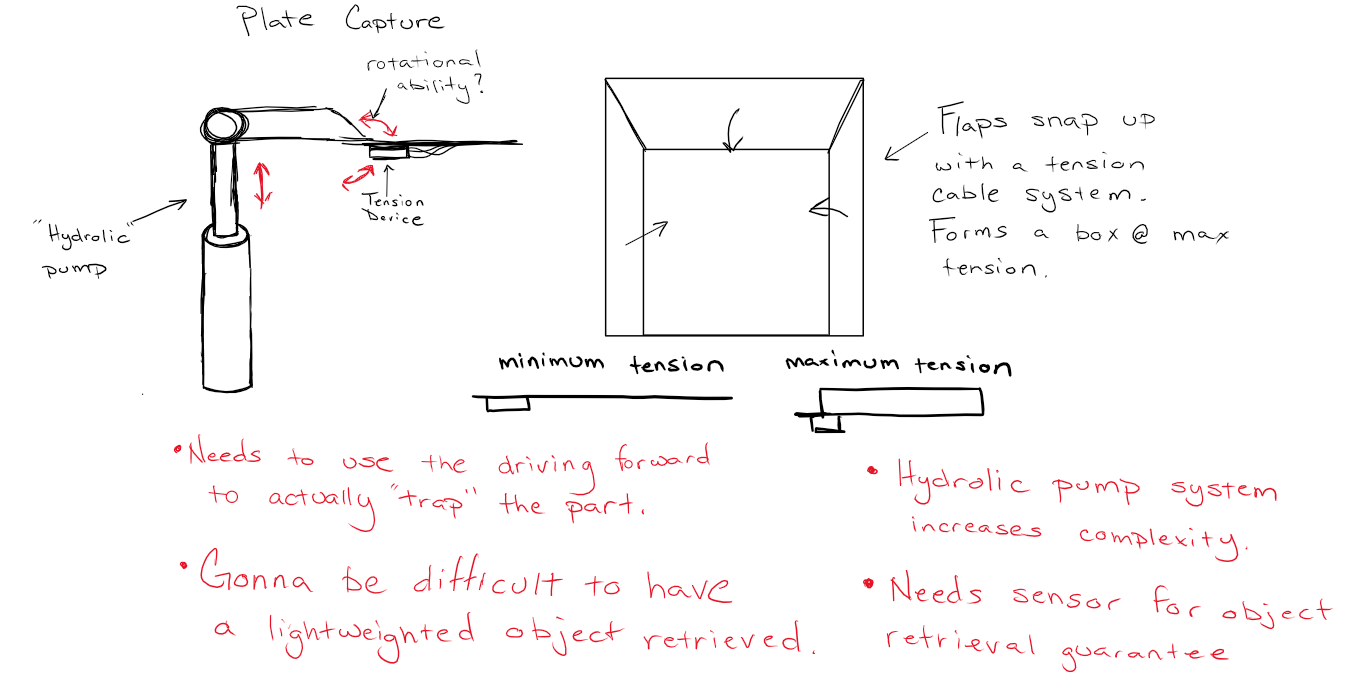 Plate Capture
rotational
ability?
"Hydrolic"
pump
Tension
Device
Flaps snap up
with a tension
cable system.
Forms a box @ max
tension.
minimum tension
maximum tension
•Needs to use the driving forward
to actually "trap" the part.
•Gonna be difficult to have
a lightweighted object retrieved.
•Hydrolic pump system
increases complexity.
•Needs sensor for object
retrieval guarantee